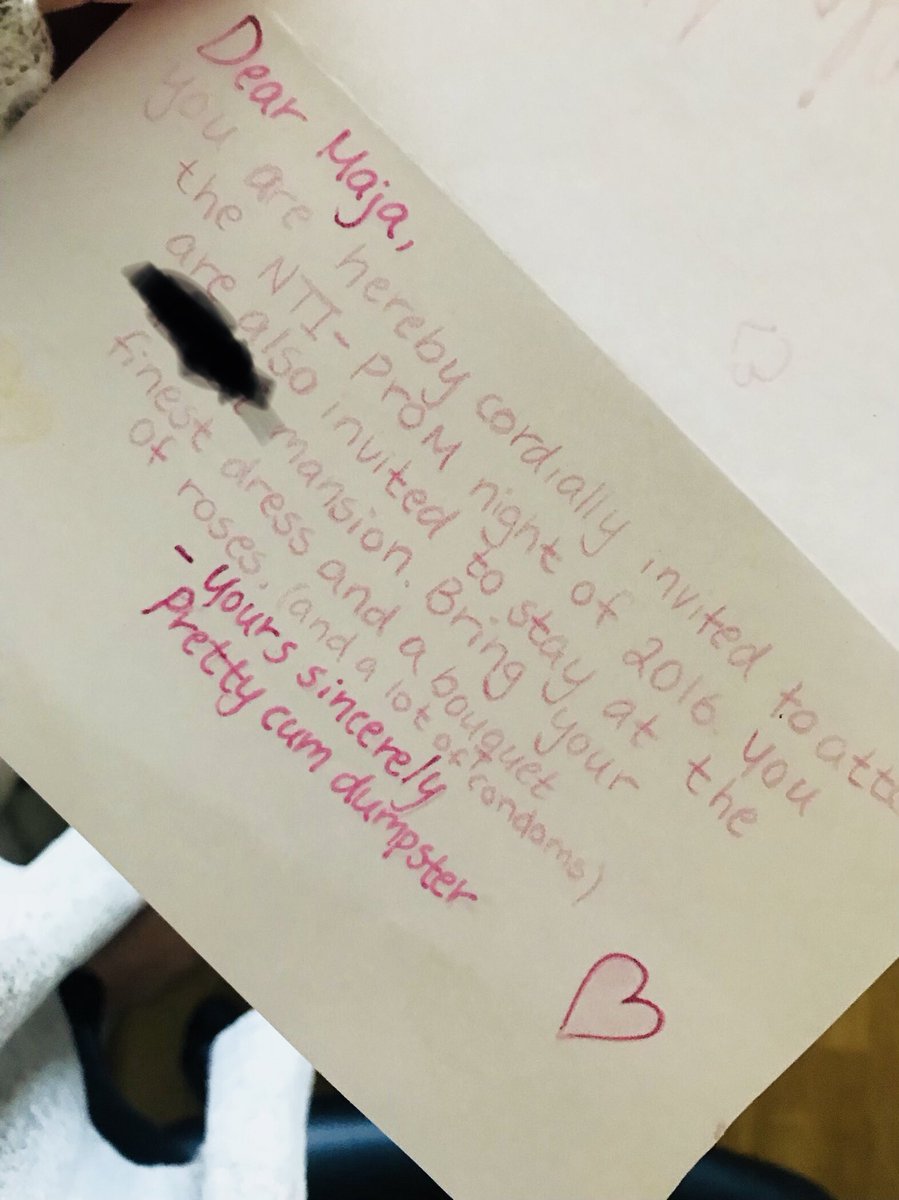 Dear Maja,
you are hereby cordially invited to atte
the NTI-PROM night of 2016. you
are also invited to stay at the
mansion. Bring your
finest dress and a bouquet
of roses. (and a lot of condoms)
- yours sincerely
Pretty cum dumpster